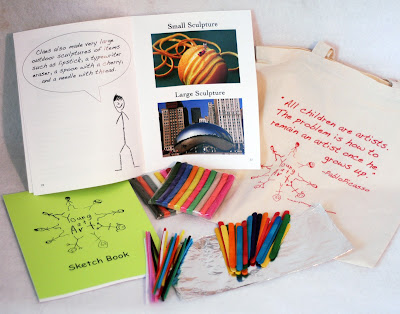 Claes also made very large
outdoor sculptures of items
such as lipstick, a typewriter
eraser, a spoon with a cherry,
and a needle with thread.
Small Sculpture
Large Sculpture
"All children are artists.
The problem is how to
remain an artist once he
grows up."
-Pablo Picasso
Art
Sketch Book